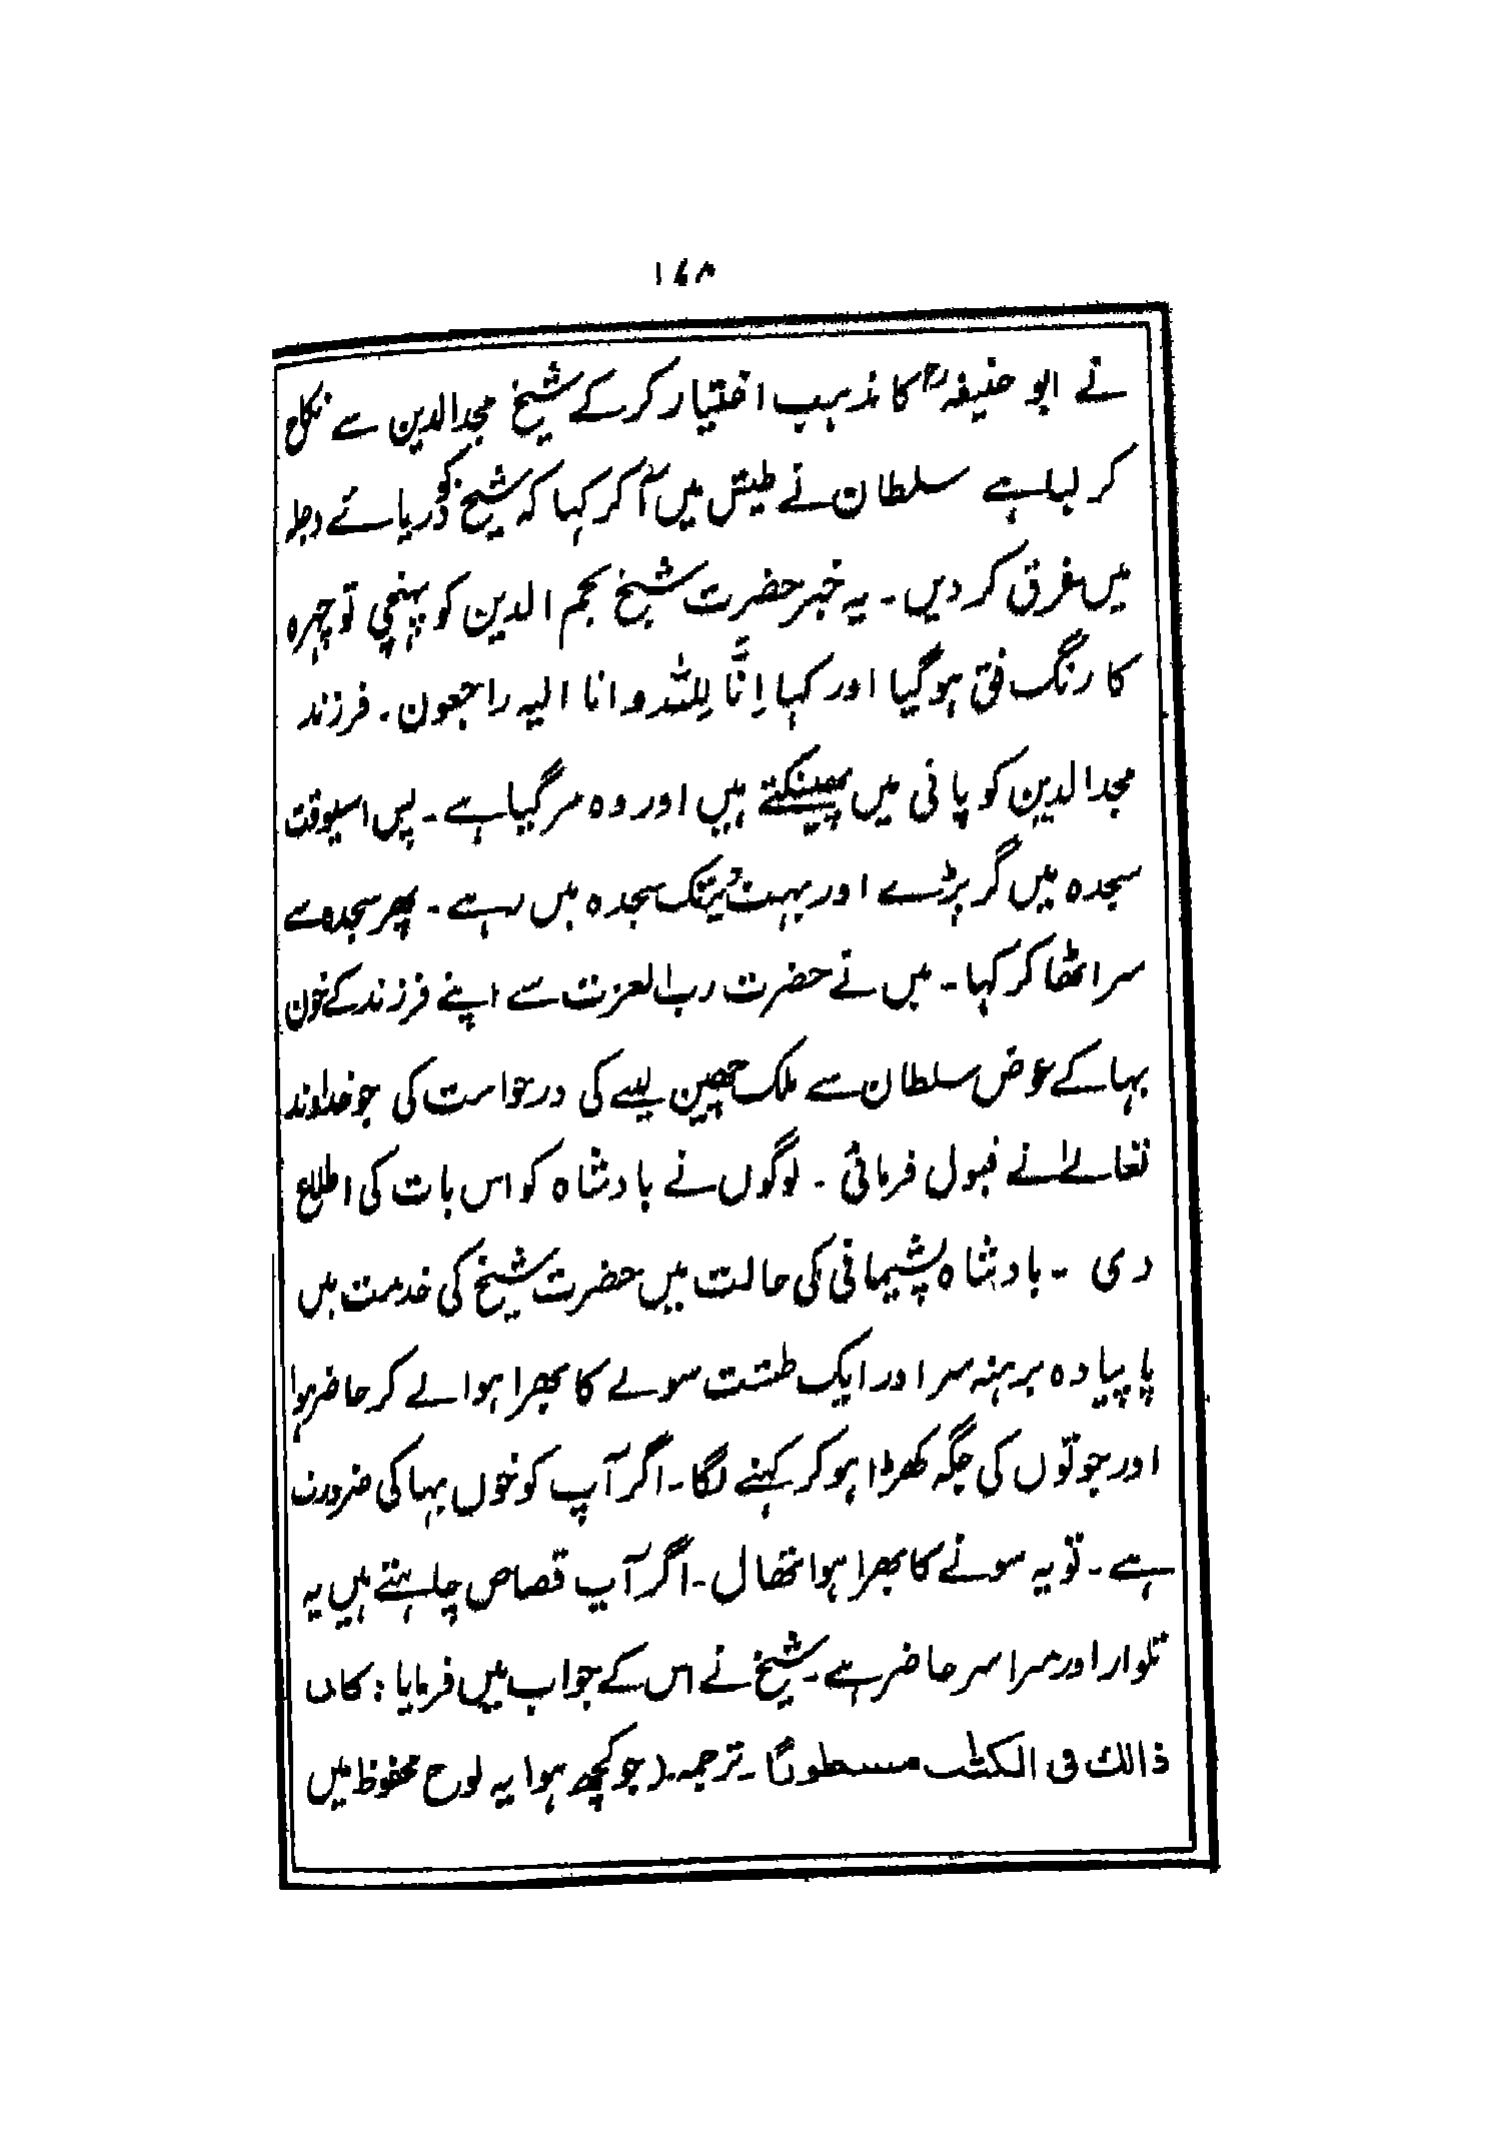 ۱۷۸
نے ابو حنیفہؒ کا مذہب اختیار کر کے شیخ مجدالدین سے نکاح
کر لیا ہے سلطان نے طیش میں آ کر کہا کہ شیخ کو دریائے دجلہ
میں غرق کر دیں ۔ یہ خبر حضرت شیخ نجم الدین کو پہنچی تو چہرہ
کا رنگ فق ہو گیا اور کہا اِنَّا لِلّٰہ و انا الیہ راجعون ۔ فرزند
مجدالدین کو پانی میں پھینکتے ہیں اور وہ مر گیا ہے ۔ پس اسیوقت
سجدہ میں گر پڑے اور بہت دیر تک سجدہ میں رہے ۔ پھر سجدہ سے
سر اٹھا کر کہا ۔ میں نے حضرت رب العزت سے اپنے فرزند کے خون
بہا کے عوض سلطان سے ملک چھین لینے کی درخواست کی جو خداوند
تعالےٰ نے قبول فرمائی ۔ لوگوں نے بادشاہ کو اس بات کی اطلاع
دی ۔ بادشاہ پشیمانی کی حالت میں حضرت شیخ کی خدمت میں
پا پیادہ برہنہ سر اور ایک طشت سونے کا بھرا ہوا لے کر حاضر ہوا
اور جوتوں کی جگہ کھڑا ہو کر کہنے لگا ۔ اگر آپ کو خوں بہا کی ضرورت
ہے ۔ تو یہ سونے کا بھرا ہوا تھال ۔ اگر آپ قصاص چاہتے ہیں یہ
تلوار اور میرا سر حاضر ہے ۔ شیخ نے اس کے جواب میں فرمایا : کان
ذالك فی الکتٰب مسطورًا ۔ ترجمہ ۔ ( جو کچھ ہوا یہ لوح محفوظ میں